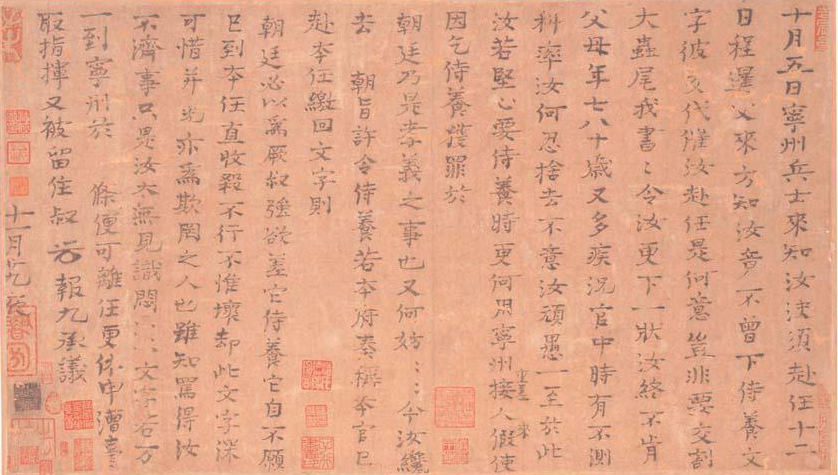 十月五日寧州兵士來知汝決須赴任十二
日程暹父來方知汝意不曾下侍養文
字彼交代催汝赴任是何意豈非要交割
大蟲尾我書〻令汝更下一狀汝終不肯
父母年七八十歲又多疾況官中時有不測
科率汝何忍捨去不意汝頑愚一至於此
汝若堅心要侍養時更何用寧州接人假使
因乞侍養獲罪於
朝廷乃是孝義之事也又何妨〻〻今汝纔
去 朝旨許令侍養若本府奏稱本官已
赴本任繳回文字則
朝廷必以為厥叔強欲差它侍養它自不願
已到本任直收殺不行不惟壞却此文字深
可惜并光亦為欺罔之人也雖知罵得汝
不濟事只是汝太無見識悶〻〻文字若万
一到寧州於 條便可離任更休申漕臺
取指揮又被留住叔 報九承議
十一月